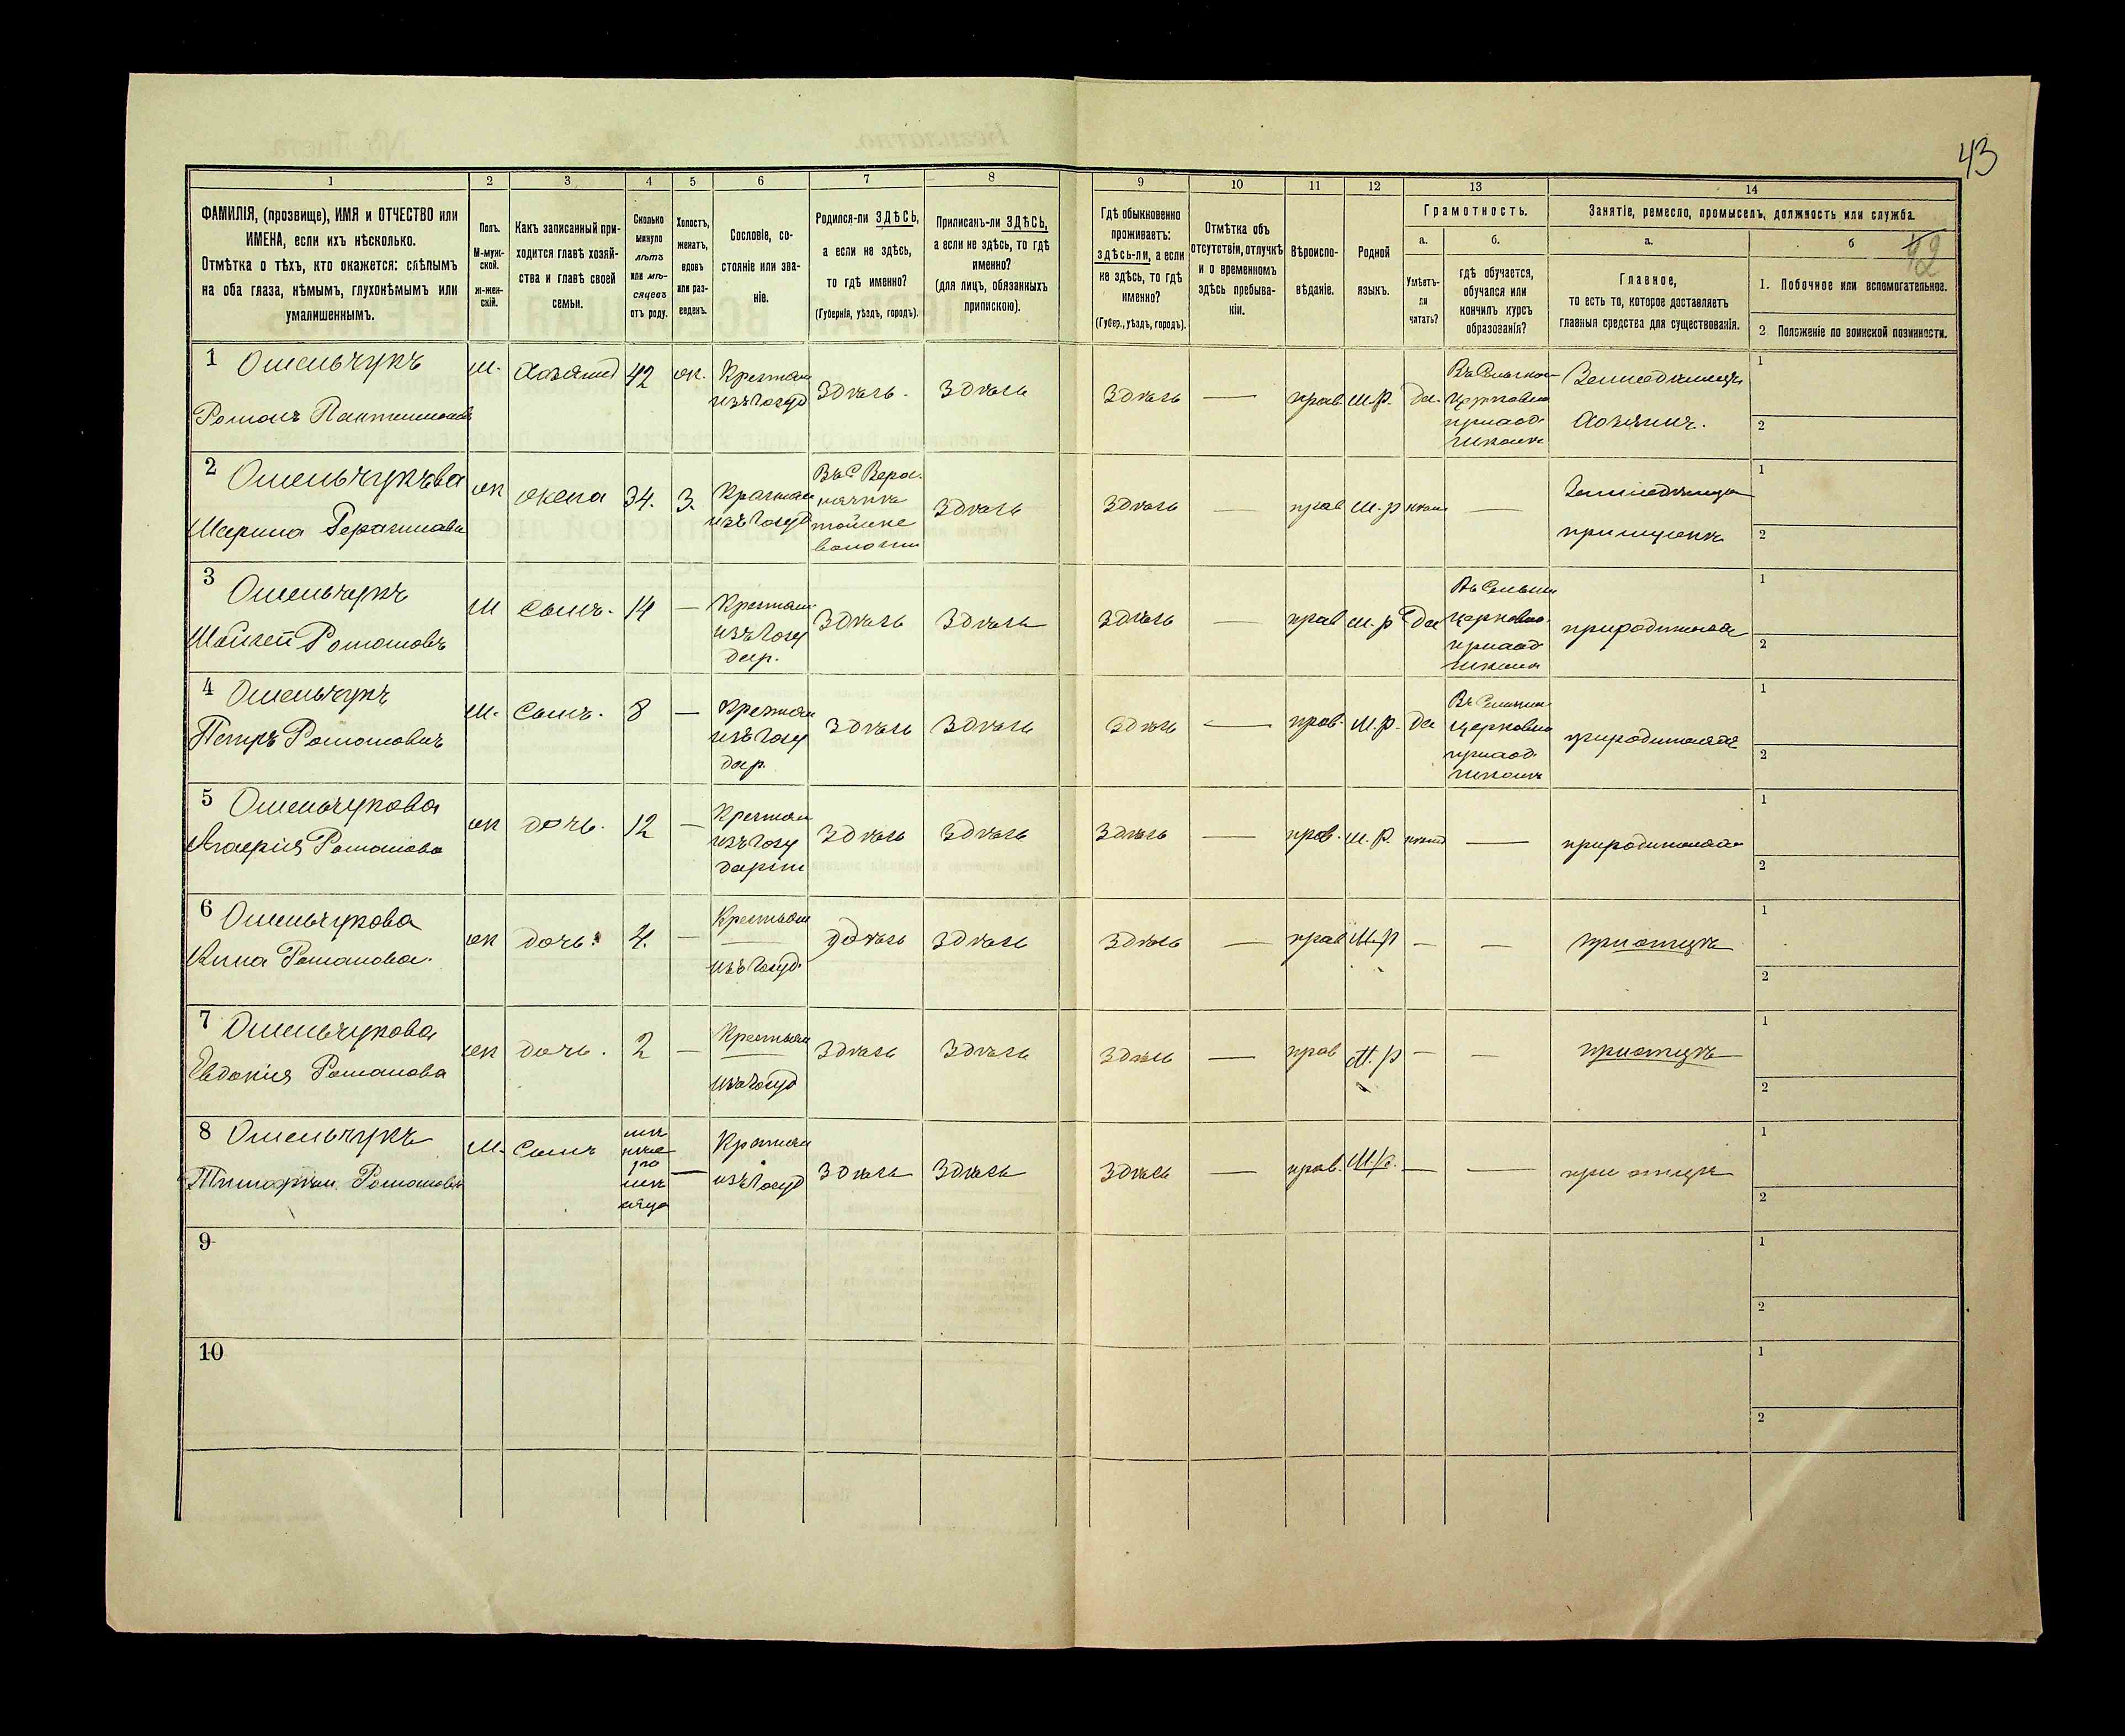 43
1 2 3 4 5 6 7 8 9 10 11 12 13 14
ФАМИЛІЯ, (прозвище), ИМЯ и ОТЧЕСТВО или
ИМЕНА, если ихъ нѣсколько.
Отмѣтка о тѣхъ, кто окажется: слѣпымъ
на оба глаза, нѣмымъ, глухонѣмымъ или
умалишеннымъ.
Полъ.
М-муж-
ской.
ж-жен-
скій.
Какъ записанный при-
ходится главѣ хозяй-
ства и главѣ своей
семьи.
Сколько
минуло
лѣтъ
или мѣ-
сяцевъ
отъ роду.
Холостъ,
женатъ,
вдовъ
или раз-
веденъ.
Сословіе, со-
стояніе или зва-
ніе.
Родился-ли ЗДѢСЬ,
а если не здѣсь,
то гдѣ именно?
(Губернія, уѣздъ, городъ).
Приписанъ-ли ЗДѢСЬ,
а если не здѣсь, то гдѣ
именно?
(для лицъ, обязанныхъ
припискою).
Гдѣ обыкновенно
проживаетъ:
здѣсь-ли, а если
не здѣсь, то гдѣ
именно?
(Губер., уѣздъ, городъ).
Отмѣтка объ
отсутствіи, отлучкѣ
и о временномъ
здѣсь пребыва-
ніи.
Вѣроиспо-
вѣданіе.
Родной
языкъ.
Грамотность.
а.
Умѣетъ-
ли
читать?
б.
гдѣ обучается,
обучался или
кончилъ курсъ
образованія?
Занятіе, ремесло, промыселъ, должность или служба.
а.
Главное,
то есть то, которое доставляетъ
главныя средства для существованія.
б
42
1. Побочное или вспомогательное.
2 Положеніе по воинской повинности.
1 Омельчукъ
Романъ
м. хозяинъ 42 ж. Крестьян
изъ Госуд
здѣсь. здѣсь здѣсь — прав. м.р. да.
Церковно
приход.
школѣ
хозяинъ.
1
2
2 Омельчукъва
Марина
ж жена 34. З. Крестьян
изъ Госуд
волости
здѣсь здѣсь — прав м.р —
1
2
3 Омельчукъ
Романовъ
М Сынъ. 14 — Крестьян
изъ Госу
дар.
здѣсь здѣсь здѣсь — прав м.р Да
церковно
приход
1
2
4 Омельчукъ
Петръ Романовъ
м. Сынъ. 8 — Крестьян
изъ Госу
дар.
здѣсь здѣсь здѣсь — прав. м.р. да
Церковно
приход.
школѣ
1
2
5 Омельчукова
Романова
ж дочь. 12 — Крестьян
изъ Госу
дарств
здѣсь здѣсь здѣсь — прав. м.р. —
1
2
6 Омельчукова
Анна Романова.
ж дочь. 4. — Крестьян
изъ Госуд.
здѣсь здѣсь здѣсь — прав М.р — — при отцѣ
1
2
7 Омельчукова
Евдокія Романова
ж дочь. 2 — Крестьян
изъ Госуд
здѣсь здѣсь здѣсь — прав М.р — — при отцѣ
1
2
8 Омельчукъ
М. Сынъ — Крестьян
изъ Госуд
здѣсь здѣсь здѣсь — прав. М.р. — — при отцѣ
1
2
9
1
2
10
1
2